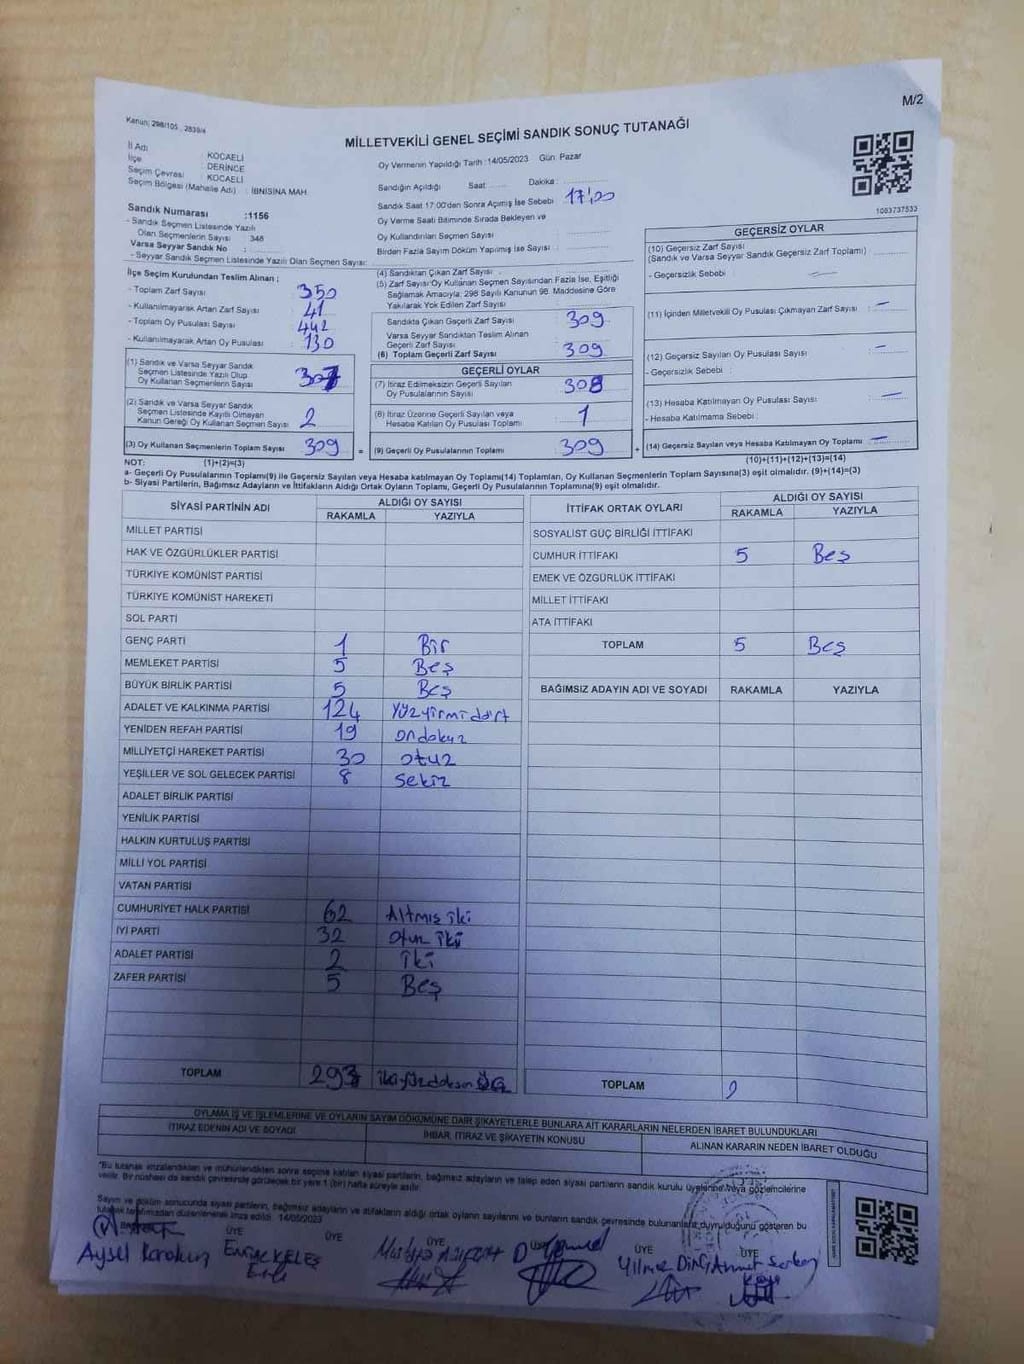 M/2
Kanun; 298/105 , 2839/4
MİLLETVEKİLİ GENEL SEÇİMİ SANDIK SONUÇ TUTANAĞI
İl Adı : KOCAELİ
İlçe : DERİNCE
Seçim Çevresi : KOCAELİ
Seçim Bölgesi (Mahalle Adı) : İBNİSİNA MAH.
Sandık Numarası :1156
- Sandık Seçmen Listesinde Yazılı
Olan Seçmenlerin Sayısı : 348
Varsa Seyyar Sandık No :
- Seyyar Sandık Seçmen Listesinde Yazılı Olan Seçmen Sayısı:
Oy Vermenin Yapıldığı Tarih :14/05/2023 Gün: Pazar
Sandığın Açıldığı Saat: Dakika:
Sandık Saat 17:00'den Sonra Açılmış İse Sebebi : 17:00
Oy Verme Saati Bitiminde Sırada Bekleyen ve
Oy Kullandırılan Seçmen Sayısı :
Birden Fazla Sayım Döküm Yapılmış İse Sayısı :
1083737533
İlçe Seçim Kurulundan Teslim Alınan ;
- Toplam Zarf Sayısı : 350
- Kullanılmayarak Artan Zarf Sayısı : 41
- Toplam Oy Pusulası Sayısı : 442
- Kullanılmayarak Artan Oy Pusulası : 130
(1) Sandık ve Varsa Seyyar Sandık
Seçmen Listesinde Yazılı Olup
Oy Kullanan Seçmenlerin Sayısı 307
(2) Sandık ve Varsa Seyyar Sandık
Seçmen Listesinde Kayıtlı Olmayan
Kanun Gereği Oy Kullanan Seçmen Sayısı 2
(3) Oy Kullanan Seçmenlerin Toplam Sayısı 309
(4) Sandıktan Çıkan Zarf Sayısı :
(5) Zarf Sayısı Oy Kullanan Seçmen Sayısından Fazla İse, Eşitliği
Sağlamak Amacıyla, 298 Sayılı Kanunun 98. Maddesine Göre
Yakılarak Yok Edilen Zarf Sayısı :
Sandıkta Çıkan Geçerli Zarf Sayısı : 309
Varsa Seyyar Sandıktan Teslim Alınan
Geçerli Zarf Sayısı :
(6) Toplam Geçerli Zarf Sayısı : 309
GEÇERLİ OYLAR
(7) İtiraz Edilmeksizin Geçerli Sayılan
Oy Pusulalarının Sayısı : 308
(8) İtiraz Üzerine Geçerli Sayılan veya
Hesaba Katılan Oy Pusulası Toplamı : 1
(9) Geçerli Oy Pusulalarının Toplamı 309
GEÇERSİZ OYLAR
(10) Geçersiz Zarf Sayısı
(Sandık ve Varsa Seyyar Sandık Geçersiz Zarf Toplamı) :
- Geçersizlik Sebebi : —
(11) İçinden Milletvekili Oy Pusulası Çıkmayan Zarf Sayısı : —
(12) Geçersiz Sayılan Oy Pusulası Sayısı : —
- Geçersizlik Sebebi :
(13) Hesaba Katılmayan Oy Pusulası Sayısı : —
- Hesaba Katılmama Sebebi :
(14) Geçersiz Sayılan veya Hesaba Katılmayan Oy Toplamı —
NOT: (1)+(2)=(3) (10)+(11)+(12)+(13)=(14)
a- Geçerli Oy Pusulalarının Toplamı(9) ile Geçersiz Sayılan veya Hesaba katılmayan Oy Toplamı(14) Toplamları, Oy Kullanan Seçmenlerin Toplam Sayısına(3) eşit olmalıdır. (9)+(14)=(3)
b- Siyasi Partilerin, Bağımsız Adayların ve İttifakların Aldığı Ortak Oyların Toplamı, Geçerli Oy Pusulalarının Toplamına(9) eşit olmalıdır.
SİYASİ PARTİNİN ADI ALDIĞI OY SAYISI
RAKAMLA YAZIYLA
MİLLET PARTİSİ
HAK VE ÖZGÜRLÜKLER PARTİSİ
TÜRKİYE KOMÜNİST PARTİSİ
TÜRKİYE KOMÜNİST HAREKETİ
SOL PARTİ
GENÇ PARTİ 1 Bir
MEMLEKET PARTİSİ 5 Beş
BÜYÜK BİRLİK PARTİSİ 5 Beş
ADALET VE KALKINMA PARTİSİ 124 Yüzyirmidört
YENİDEN REFAH PARTİSİ 19 ondokuz
MİLLİYETÇİ HAREKET PARTİSİ 30 otuz
YEŞİLLER VE SOL GELECEK PARTİSİ 8 sekiz
ADALET BİRLİK PARTİSİ
YENİLİK PARTİSİ
HALKIN KURTULUŞ PARTİSİ
MİLLİ YOL PARTİSİ
VATAN PARTİSİ
CUMHURİYET HALK PARTİSİ 62 Altmış iki
İYİ PARTİ 32 otuz iki
ADALET PARTİSİ 2 iki
ZAFER PARTİSİ 5 Beş
TOPLAM 293 ikiyüzdoksan üç
İTTİFAK ORTAK OYLARI ALDIĞI OY SAYISI
RAKAMLA YAZIYLA
SOSYALİST GÜÇ BİRLİĞİ İTTİFAKI
CUMHUR İTTİFAKI 5 Beş
EMEK VE ÖZGÜRLÜK İTTİFAKI
MİLLET İTTİFAKI
ATA İTTİFAKI
TOPLAM 5 Beş
BAĞIMSIZ ADAYIN ADI VE SOYADI RAKAMLA YAZIYLA
TOPLAM
OYLAMA İŞ VE İŞLEMLERİNE VE OYLARIN SAYIM DÖKÜMÜNE DAİR ŞİKAYETLERLE BUNLARA AİT KARARLARIN NELERDEN İBARET BULUNDUKLARI
İTİRAZ EDENİN ADI VE SOYADI İHBAR, İTİRAZ VE ŞİKAYETİN KONUSU ALINAN KARARIN NEDEN İBARET OLDUĞU
*Bu tutanak imzalandıktan ve mühürlendikten sonra seçime katılan siyasi partilerin, bağımsız adayların ve talep eden siyasi partilerin sandık kurulu üyelerine veya gözlemcilerine
verilir. Bir nüshası da sandık çevresinde görülecek bir yere 1 (bir) hafta süreyle asılır.
Sayım ve döküm sonucunda siyasi partilerin, bağımsız adayların ve ittifakların aldığı ortak oyların sayılarını ve bunların sandık çevresinde bulunanlara duyrulduğunu gösteren bu
tutanak tarafımızdan düzenlenerek imza edildi. 14/05/2023
ÜYE ÜYE ÜYE ÜYE ÜYE
Aysel Karakuş Ensar KELEŞ Mustafa Yılmaz DİNÇ Ahmet Serkan